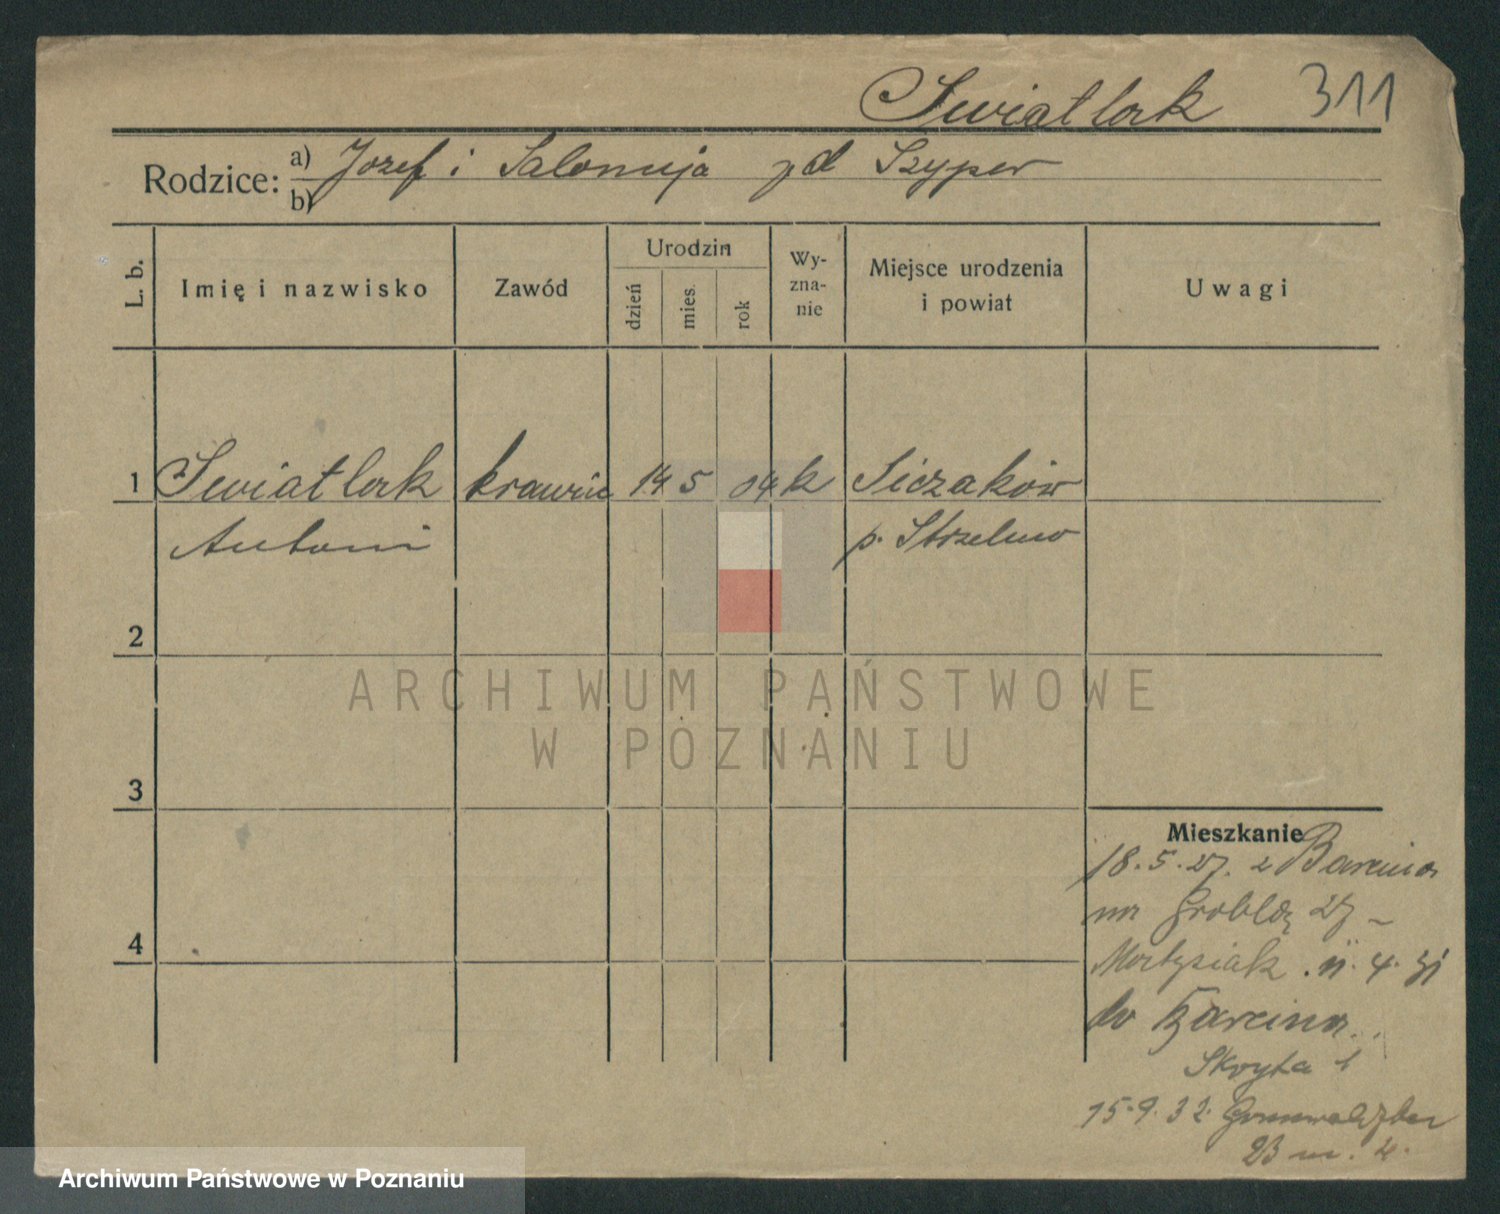 Swiatlak 311
Rodzice: a) Jozef i Salomeja zd Szyper
b)
L. b. Imię i nazwisko Zawód Urodzin dzień mies. rok Wy-zna-nie Miejsce urodzenia i powiat Uwagi
1 Swiatlak krawiec 14 5 04 k Siczaków
Antoni p. Strzelno
2
3
4
Mieszkanie
18.5.27. z Barcina
na Grobla 27 -
Matysiak . 11. 4. 31
do Barcina.
Skryta 1
15.9.32. Grunwaldzka
23 m. 4.
ARCHIWUM PAŃSTWOWE
W POZNANIU
Archiwum Państwowe w Poznaniu